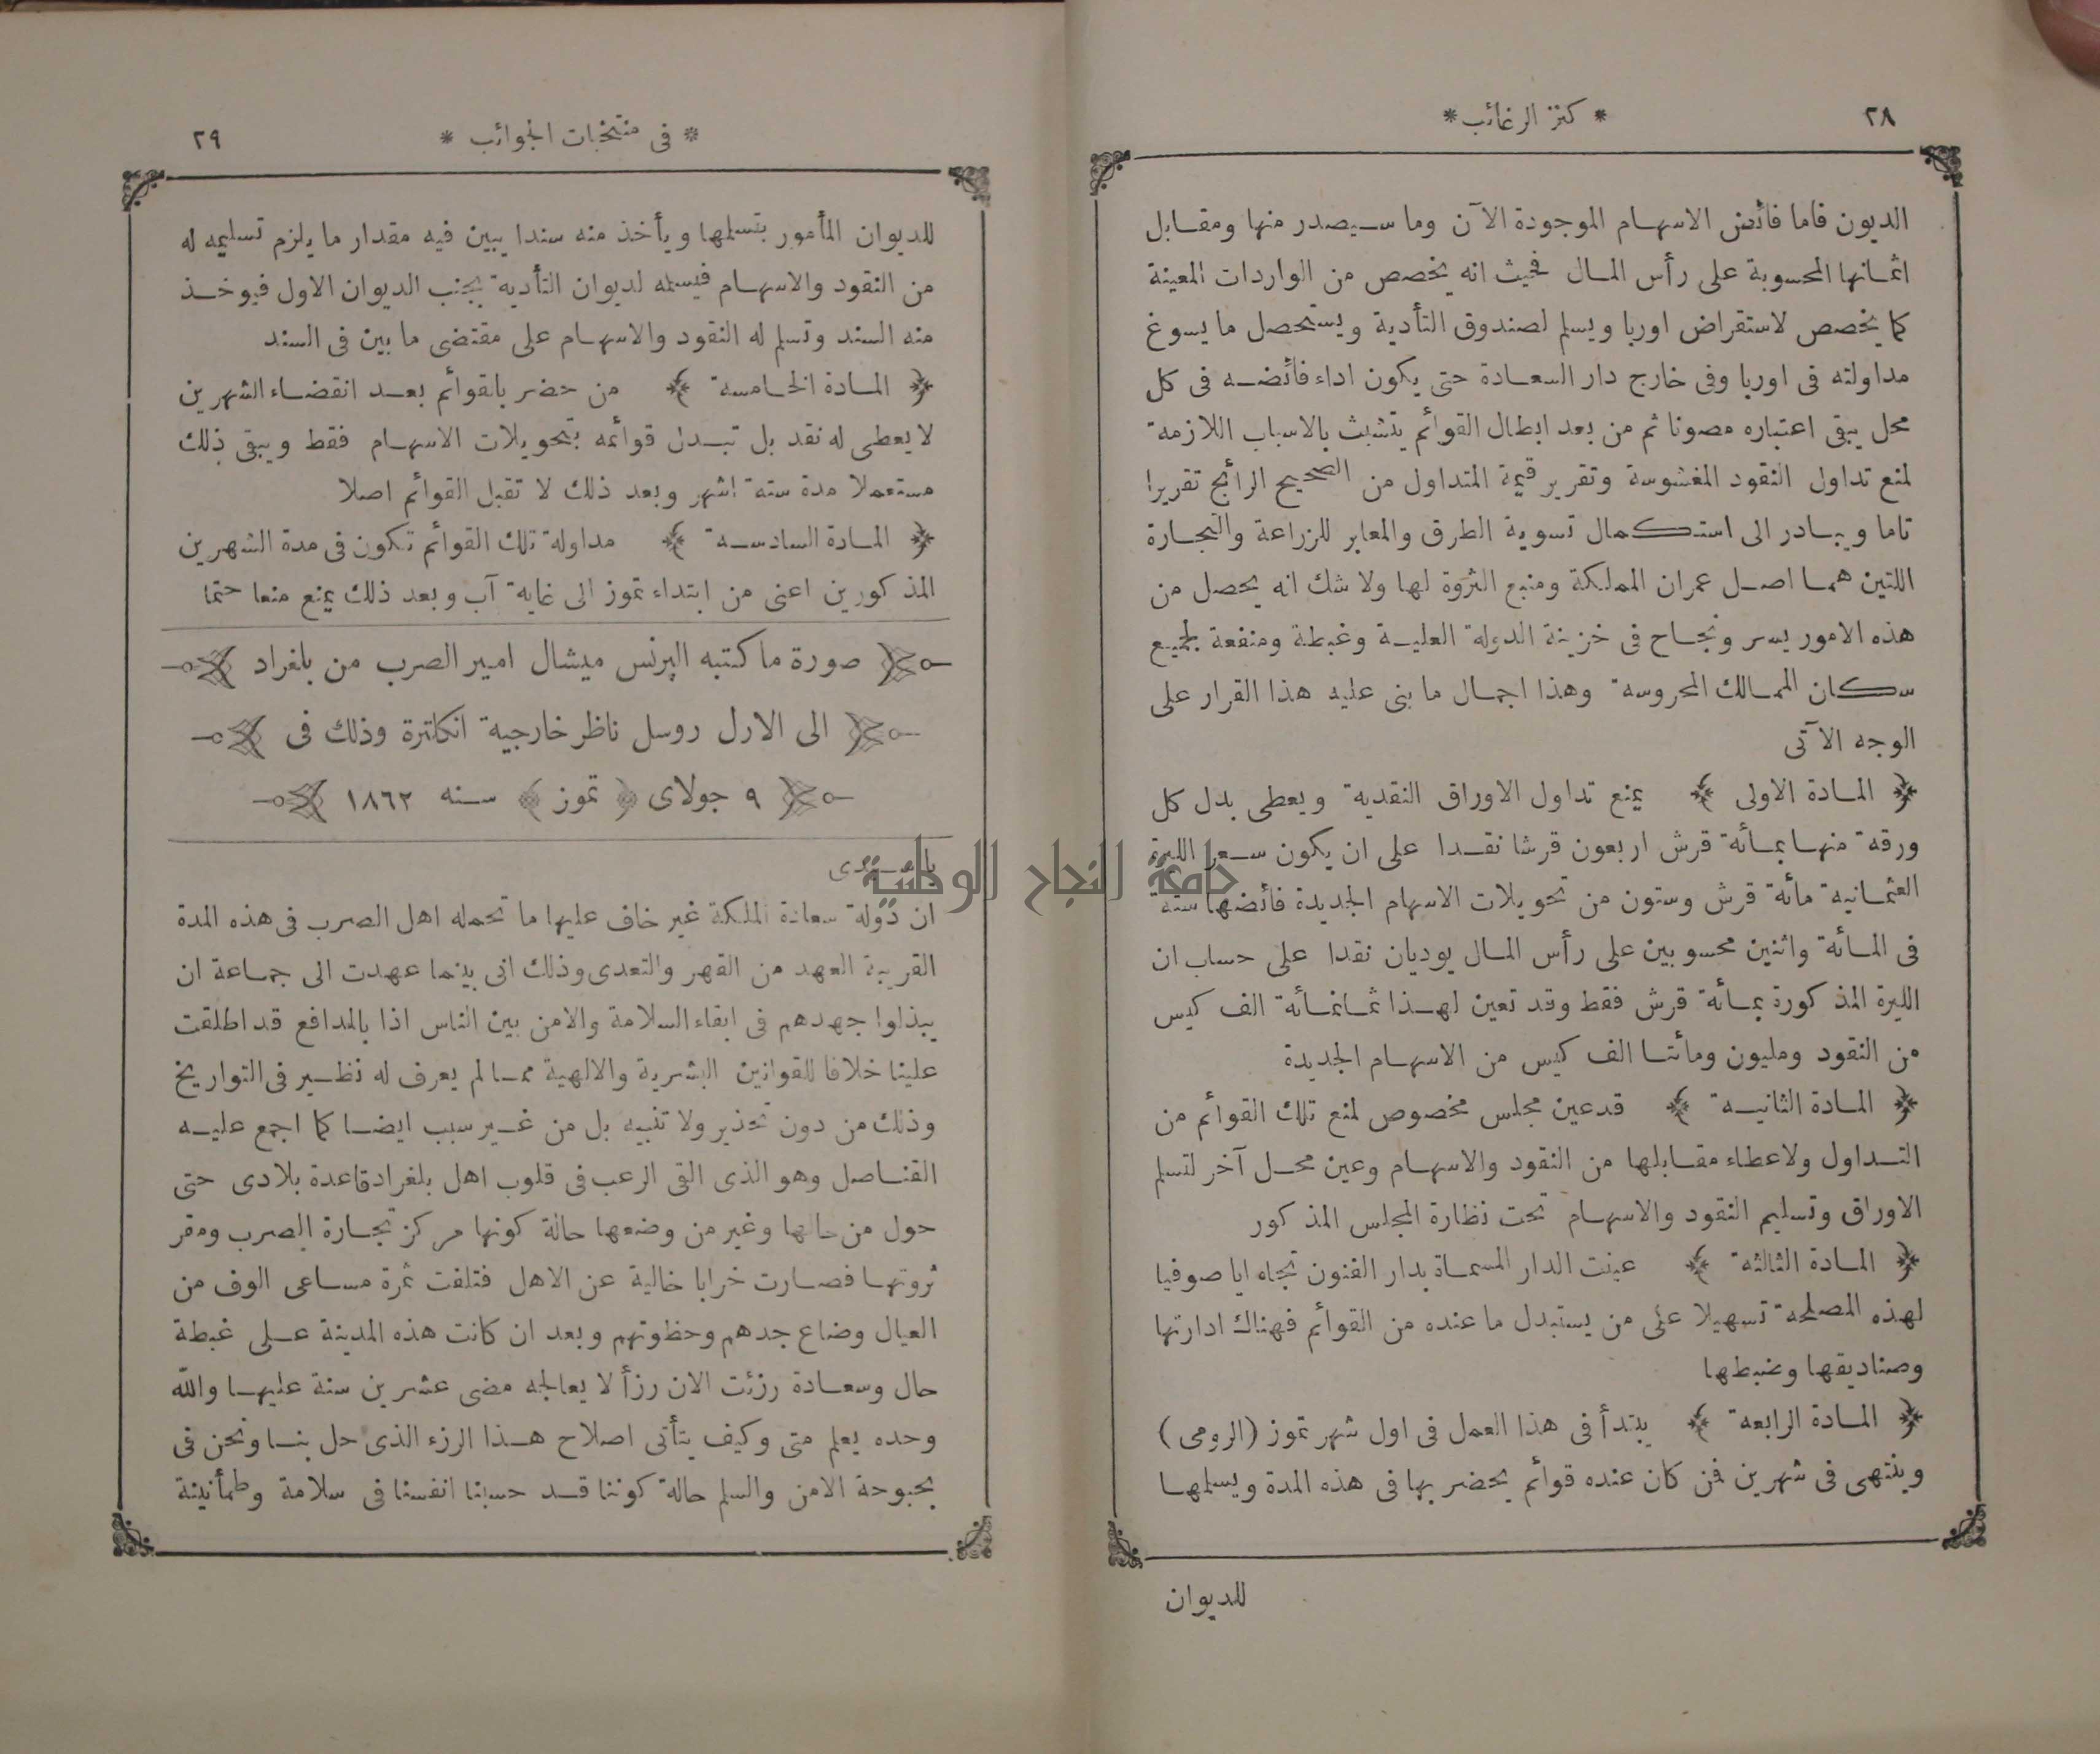 ٢٨
* كنز الرغائب *
الديون فاما فائض الاسهام الموجودة الآن وما سيصدر منها ومقابل
اثمانها المحسوبة على رأس المال فحيث انه يخصص من الواردات المعينة
كما يخصص لاستقراض اوربا ويسلم لصندوق التأدية ويستحصل ما يسوغ
مداولته فى اوربا وفى خارج دار السعادة حتى يكون اداء فائضه فى كل
محل يبقى اعتباره مصونا ثم من بعد ابطال القوائم يتشبث بالاسباب اللازمة
لمنع تداول النقود المغشوسة وتقرير قيمة المتداول من الصحيح الرائج تقريرا
تاما ويبادر الى استكمال تسوية الطرق والمعابر للزراعة والتجارة
اللتين هما اصل عمران المملكة ومنبع الثروة لها ولا شك انه يحصل من
هذه الامور يسر ونجاح فى خزينة الدولة العلية وغبطة ومنفعة لجميع
سكان الممالك المحروسة وهذا اجمال ما بنى عليه هذا القرار على
الوجه الآتى
﴿ المادة الاولى ﴾ يمنع تداول الاوراق النقدية ويعطى بدل كل
ورقة منها بمائة قرش اربعون قرشا نقدا على ان يكون سعر الليرة
العثمانية مائة قرش وستون من تحويلات الاسهام الجديدة فائضها ستة
فى المائة واثنين محسوبين على رأس المال يوديان نقدا على حساب ان
الليرة المذكورة بمائة قرش فقط وقد تعين لهذا ثمانمائة الف كيس
من النقود ومليون ومائتا الف كيس من الاسهام الجديدة
﴿ المادة الثانية ﴾ قد عين مجلس مخصوص لمنع تلك القوائم من
التداول ولاعطاء مقابلها من النقود والاسهام وعين محل آخر لتسلم
الاوراق وتسليم النقود والاسهام تحت نظارة المجلس المذكور
﴿ المادة الثالثة ﴾ عينت الدار المسماة بدار الفنون تجاه ايا صوفيا
لهذه المصلحة تسهيلا على من يستبدل ما عنده من القوائم فهناك ادارتها
وصناديقها وضبطها
﴿ المادة الرابعة ﴾ يبتدأ فى هذا العمل فى اول شهر تموز (الرومى)
وينتهى فى شهرين فمن كان عنده قوائم يحضر بها فى هذه المدة ويسلمها
للديوان
* فى منتخبات الجوائب *
٢٩
للديوان المأمور بتسلمها ويأخذ منه سندا يبين فيه مقدار ما يلزم تسليمه له
من النقود والاسهام فيسلمه لديوان التأدية بجنب الديوان الاول فيوخذ
منه السند وتسلم له النقود والاسهام على مقتضى ما بين فى السند
﴿ المادة الخامسة ﴾ من حضر بالقوائم بعد انقضاء الشهرين
لا يعطى له نقد بل تبدل قوائمه بتحويلات الاسهام فقط ويبقى ذلك
مستعملا مدة ستة اشهر وبعد ذلك لا تقبل القوائم اصلا
﴿ المادة السادسة ﴾ مداولة تلك القوائم تكون فى مدة الشهرين
المذكورين اعنى من ابتداء تموز الى غاية آب وبعد ذلك يمنع منعا حتما
صورة ما كتبه البرنس ميشال امير الصرب من بلغراد
الى الارل روسل ناظر خارجية انكلترة وذلك فى
٩ جولاى ﴿ تموز ﴾ سنه ١٨٦٢
يا سيدى
ان دولة سعادة الملكة غير خاف عليها ما تحمله اهل الصرب فى هذه المدة
القريبة العهد من القهر والتعدى وذلك انى بينما عهدت الى جماعة ان
يبذلوا جهدهم فى ابقاء السلامة والامن بين الناس اذا بالمدافع قد اطلقت
علينا خلافا للقوانين البشرية والالهية مما لم يعرف له نظير فى التواريخ
وذلك من دون تحذير ولا تنبيه بل من غير سبب ايضا كما اجمع عليه
القناصل وهو الذى القى الرعب فى قلوب اهل بلغراد قاعدة بلادى حتى
حول من حالها وغير من وضعها حالة كونها مركز تجارة الصرب ومقر
ثروتها فصارت خرابا خالية عن الاهل فتلفت ثمرة مساعى الوف من
العيال وضاع جدهم وحظوتهم وبعد ان كانت هذه المدينة على غبطة
حال وسعادة رزئت الان رزأ لا يعالجه مضى عشرين سنة عليها والله
وحده يعلم متى وكيف يتأتى اصلاح هذا الرزء الذى حل بنا ونحن فى
بحبوحة الامن والسلم حالة كوننا قد حسبنا انفسنا فى سلامة وطمأنينة
جامعة النجاح الوطنية